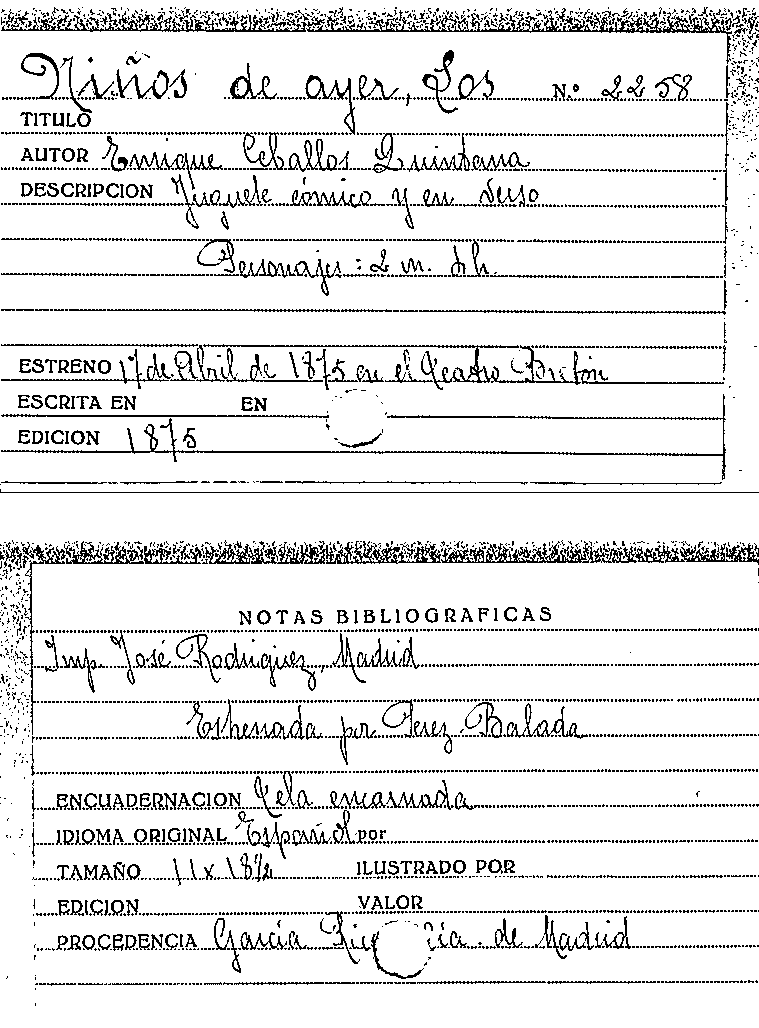 Niños de ayer, Los N.º 2258
TITULO
AUTOR Enrique Ceballos Quintana
DESCRIPCION Juguete cómico y en verso
Personajes: 2 m. 4 h.
ESTRENO 17 de Abril de 1875 en el Teatro Bretón
ESCRITA EN EN
EDICION 1875
NOTAS BIBLIOGRAFICAS
Imp. José Rodriguez, Madrid
Estrenada por Perez Balada
ENCUADERNACION Tela encarnada
IDIOMA ORIGINAL Español por
TAMAÑO 11 x 18½ ILUSTRADO POR
EDICION VALOR
PROCEDENCIA García Rico Cía. de Madrid